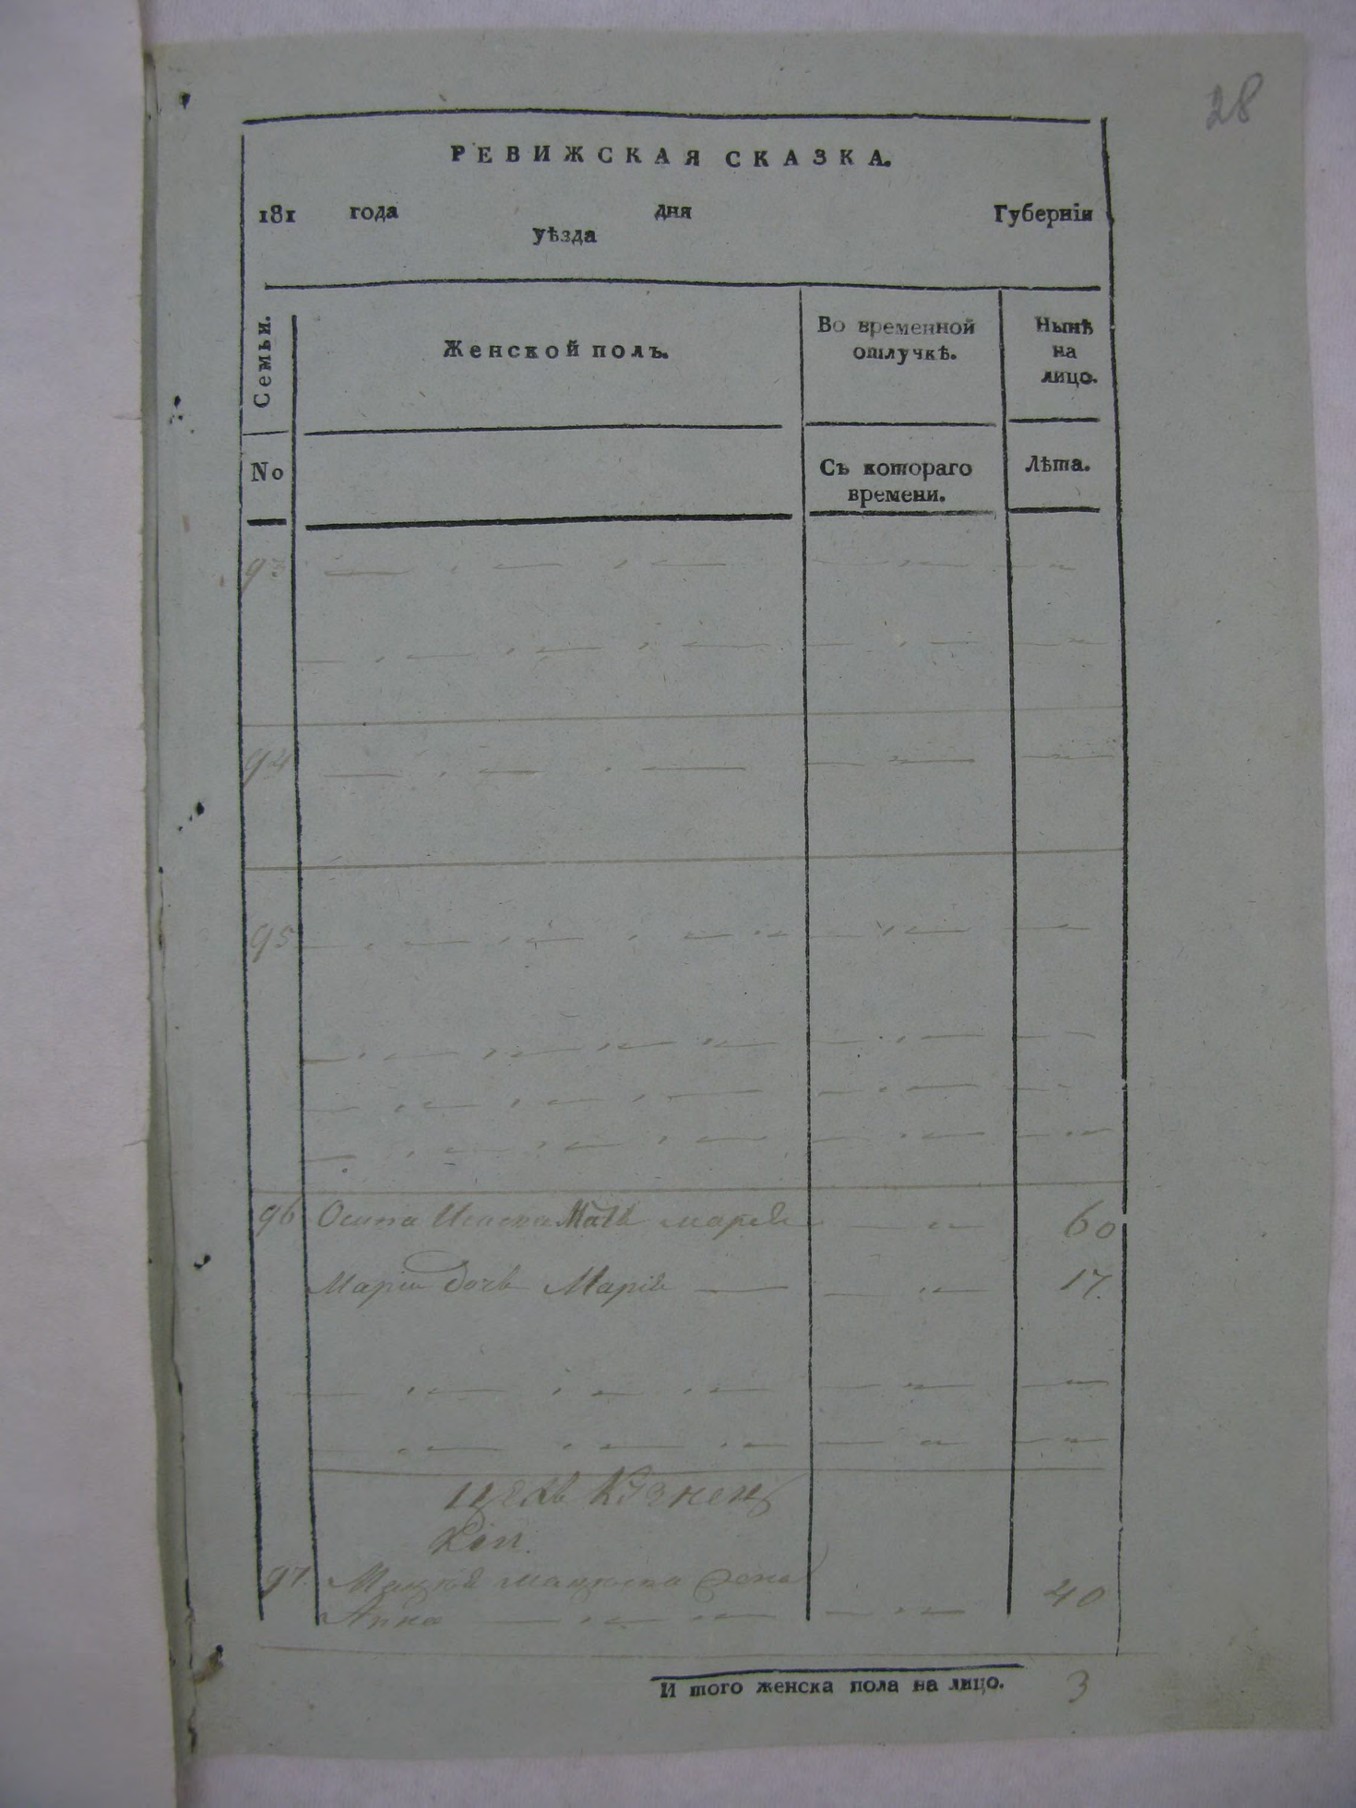 28
РЕВИЖСКАЯ СКАЗКА.
181 года дня Губерніи
уѣзда
Семьи.
Женской полъ.
Во временной
отлучкѣ.
Нынѣ
на
лицо.
No
Съ котораго
времени.
Лѣта.
93
94
95
96 Осипа Мать Марія 60
Марии дочь Марія 17.
цехъ Кузнец
кiи.
97. жена
Анна 40
И того женска пола на лицо. 3